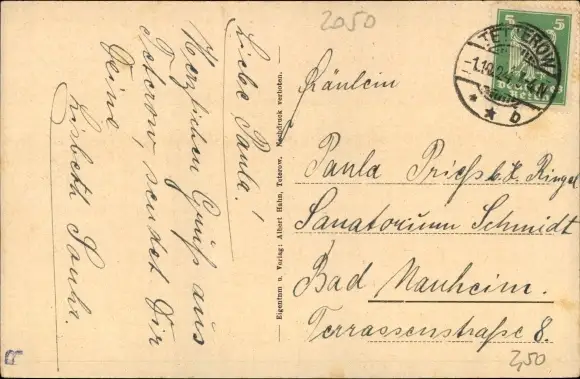 2050
Liebe Paula!
Herzlichen Gruß aus
Teterow, sendet Dir
Deine
Lisbeth
Eigentum u. Verlag: Albert Hahn, Teterow. Nachdruck verboten.
5 5
TETEROW
* * b
Fräulein
Paula Prieß b. Fr. Ringel
Sanatorium Schmidt
Bad Nauheim.
Terrassenstraße 8.
2,50